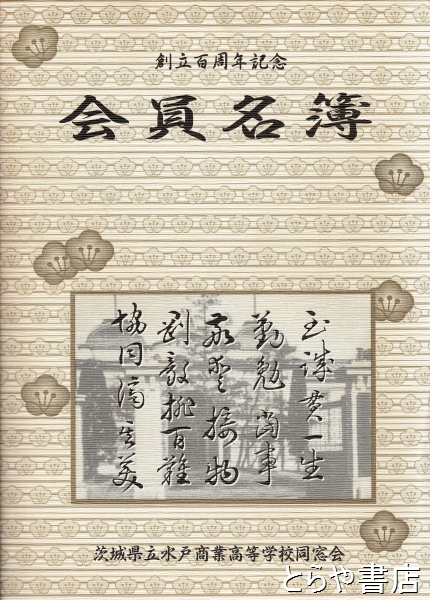 創立百周年記念
会員名簿
至誠貫一生
勤勉當事
敬愛接物
剛毅排百難
協同済其美
茨城県立水戸商業高等学校同窓会
とらや書店